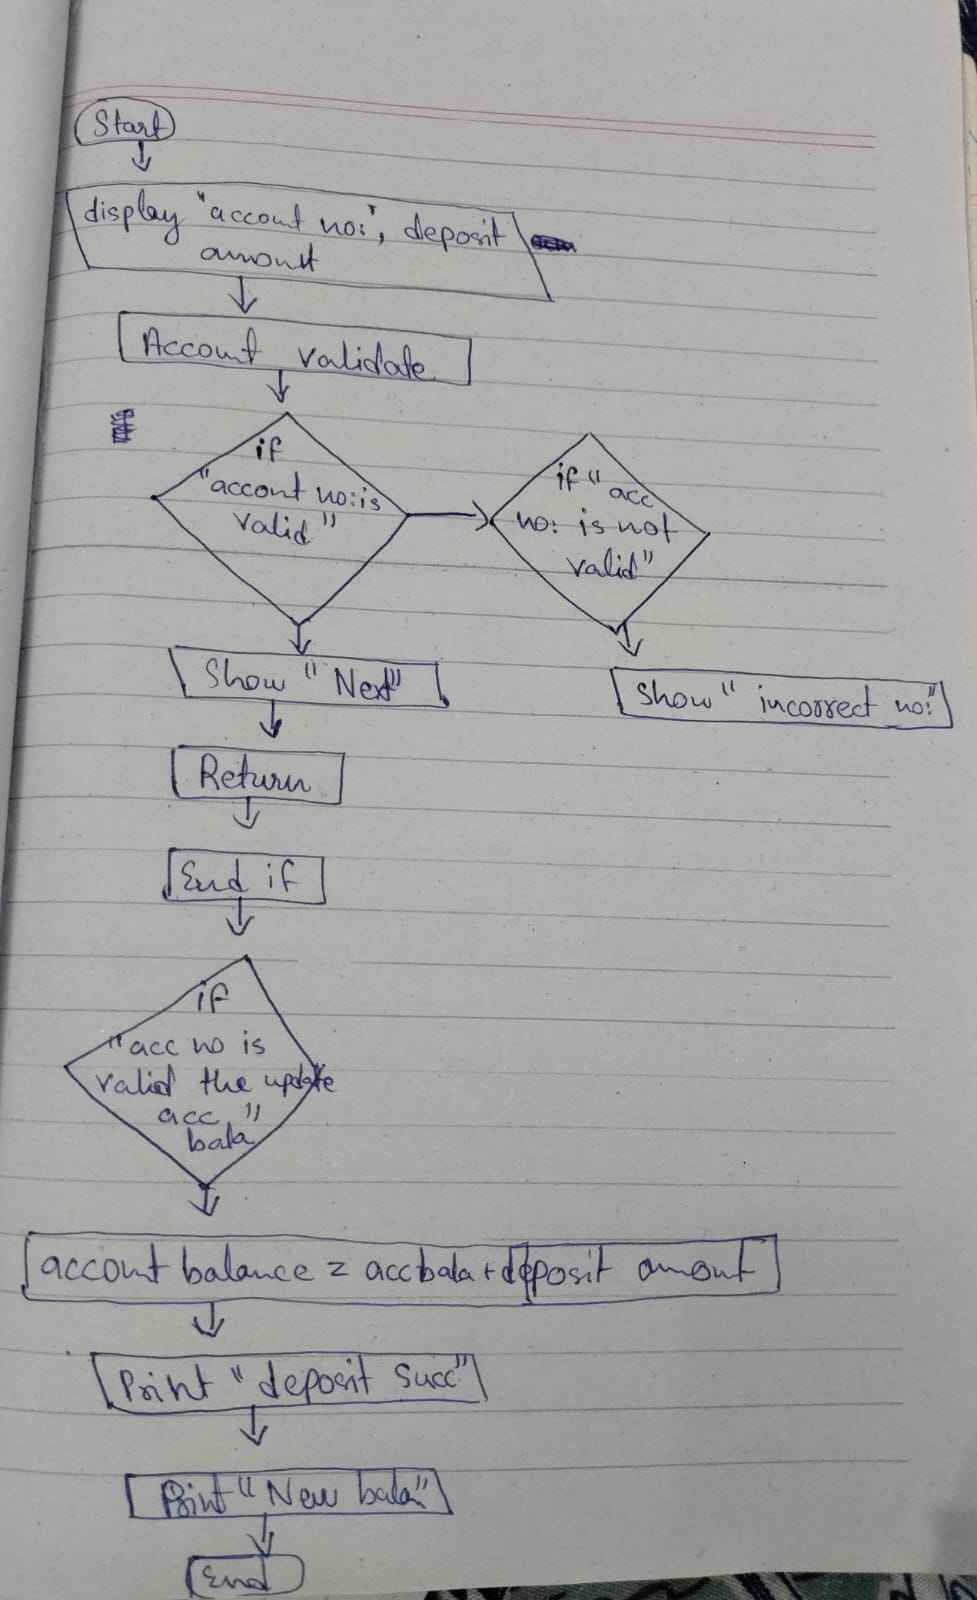 Start
display "account no:", deposit
amount
Account validate
if
"accont no: is
valid"
if "acc
no: is not
valid"
Show "Next"
Show "incorrect no:"
Return
End if
if
"acc no is
valid the update
acc
bala"
account balance = acc bala + deposit amount
Print "deposit succ"
Print "New bala"
End